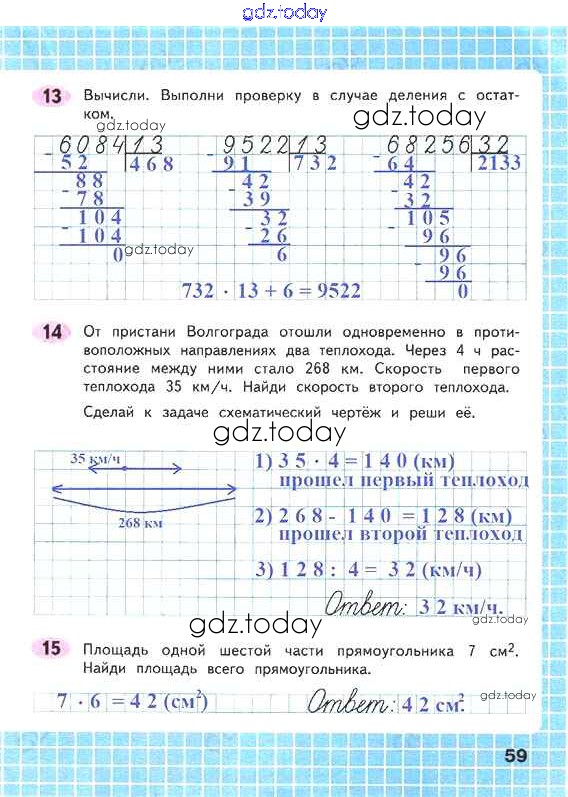 gdz.today
13 Вычисли. Выполни проверку в случае деления с остат-
ком.
gdz.today
gdz.today
6084 13 9522 13 68256 32
- 52 468 - 91 732 - 64 2133
88 42 42
- 78 - 39 - 32
104 32 105
- 104 - 26 - 96
0 gdz.today 6 96
- 96
732 · 13 + 6 = 9522 0
14 От пристани Волгограда отошли одновременно в проти-
воположных направлениях два теплохода. Через 4 ч рас-
стояние между ними стало 268 км. Скорость первого
теплохода 35 км/ч. Найди скорость второго теплохода.
Сделай к задаче схематический чертёж и реши её.
gdz.today
35 км/ч 1) 35 · 4 = 140 (км)
прошел первый теплоход
268 км 2) 268 - 140 = 128 (км)
прошел второй теплоход
3) 128 : 4 = 32 (км/ч)
Ответ: 32 км/ч.
gdz.today
15 Площадь одной шестой части прямоугольника 7 см².
Найди площадь всего прямоугольника.
7 · 6 = 42 (см²) Ответ: 42 см². gdz.today
59